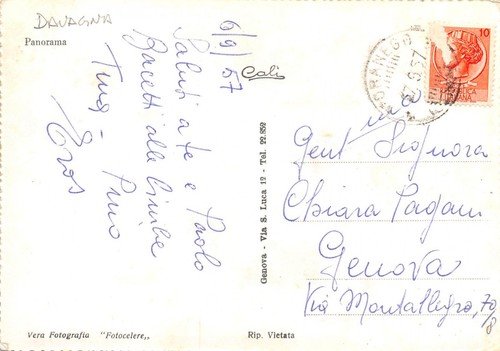 DAVAGNA
Panorama
6/9/57
Saluti a te e Paolo
Bacetti alle bimbe
Tina - Pino
Eros
Cali
Genova - Via S. Luca 12 - Tel. 22.852
10
Gent Signora
Chiara Pagani
Genova
Via Montallegro, 70/8
Vera Fotografia "Fotocelere„
Rip. Vietata